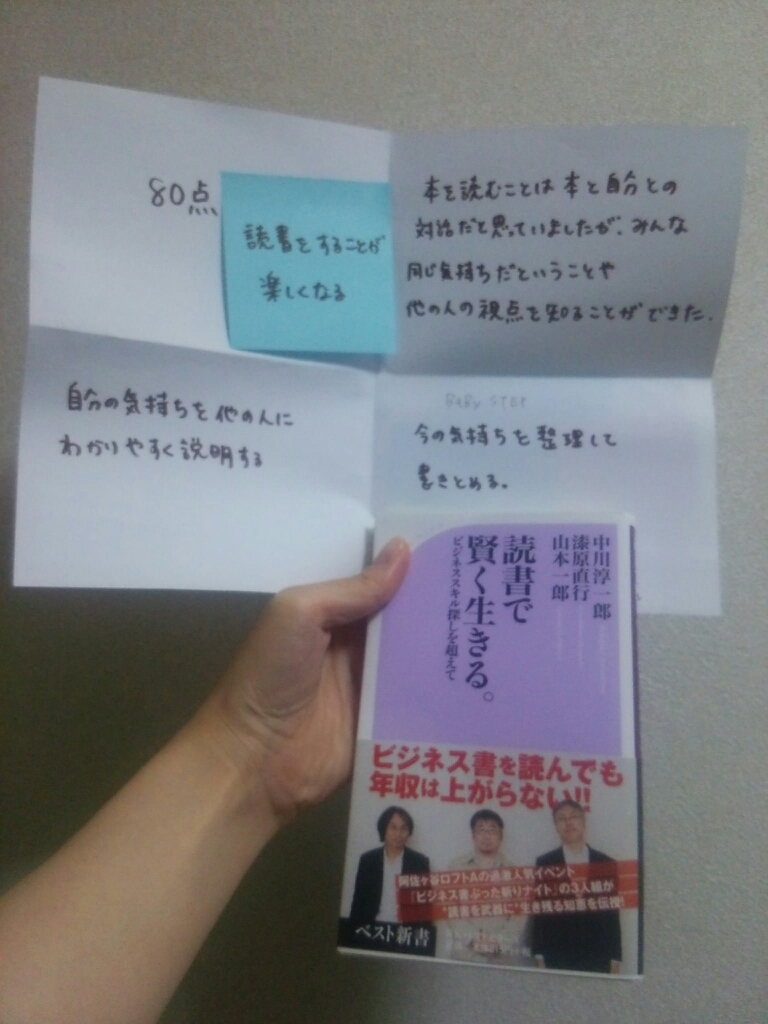 80点
読書をすることが
楽しくなる
本を読むことは本と自分との
対話だと思っていましたが、みんな
同じ気持ちだということや
他の人の視点を知ることができた.
自分の気持ちを他の人に
わかりやすく説明する
BABY STEP
今の気持ちを整理して
書きとめる。
中川淳一郎
漆原直行
山本一郎
読書で
賢く生きる。
ビジネススキル探しを超えて
ビジネス書を読んでも
年収は上がらない!!
阿佐ヶ谷ロフトAの過激人気イベント
「ビジネス書ぶった斬りナイト」の3人組が
“読書を武器に”生き残る知恵を伝授!
ベスト新書